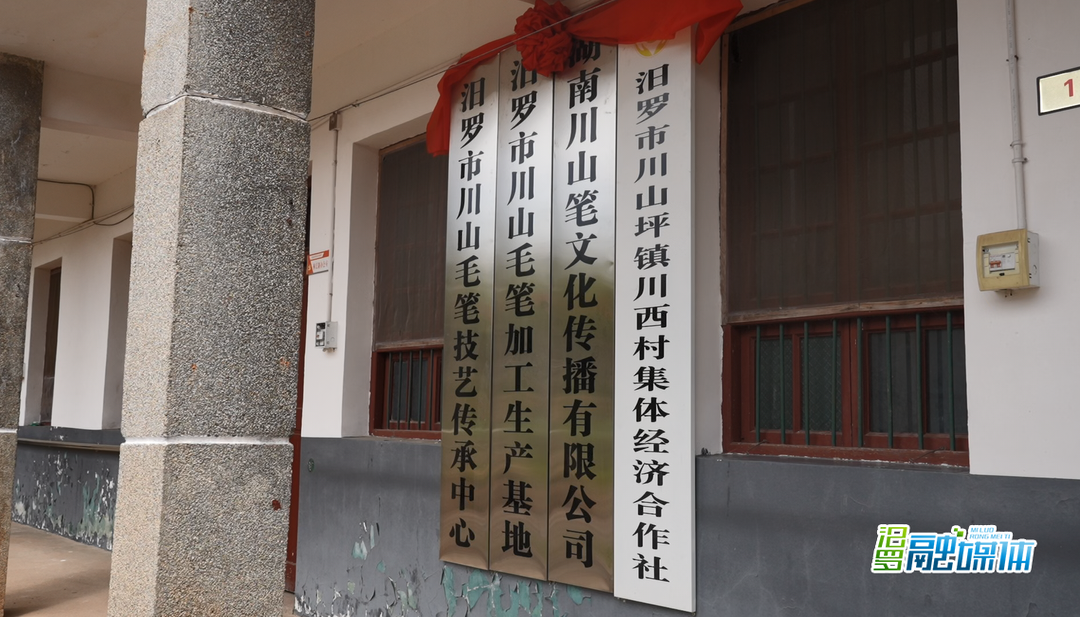 汨罗市川山毛笔技艺传承中心
汨罗市川山毛笔加工生产基地
湖南川山笔文化传播有限公司
汨罗市川山坪镇川西村集体经济合作社
1
汨罗融媒体
MI LUO
RONG MEI TI